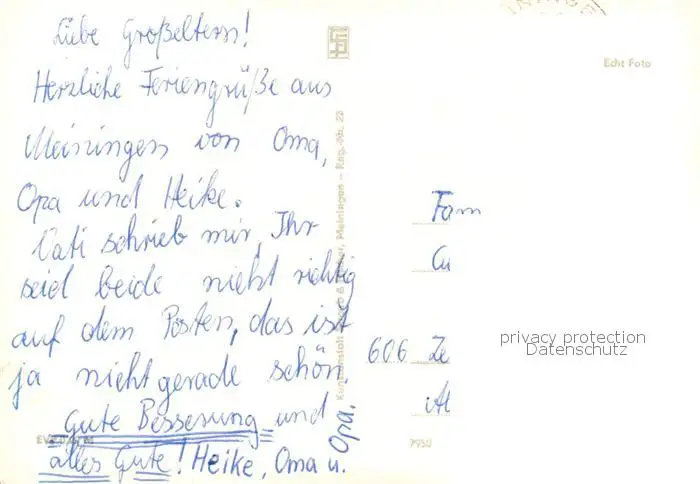 Liebe Großeltern!
Herzliche Feriengrüße aus
Meiningen von Oma,
Opa und Heike.
Vati schrieb mir, Ihr
seid beide nicht richtig
auf dem Posten, das ist
ja nicht gerade schön.
Gute Besserung und
alles Gute! Heike, Oma u.
Opa.
Echt Foto
Meiningen – Rng.-Nr. 22
Fam
606 Ze
privacy protection
Datenschutz